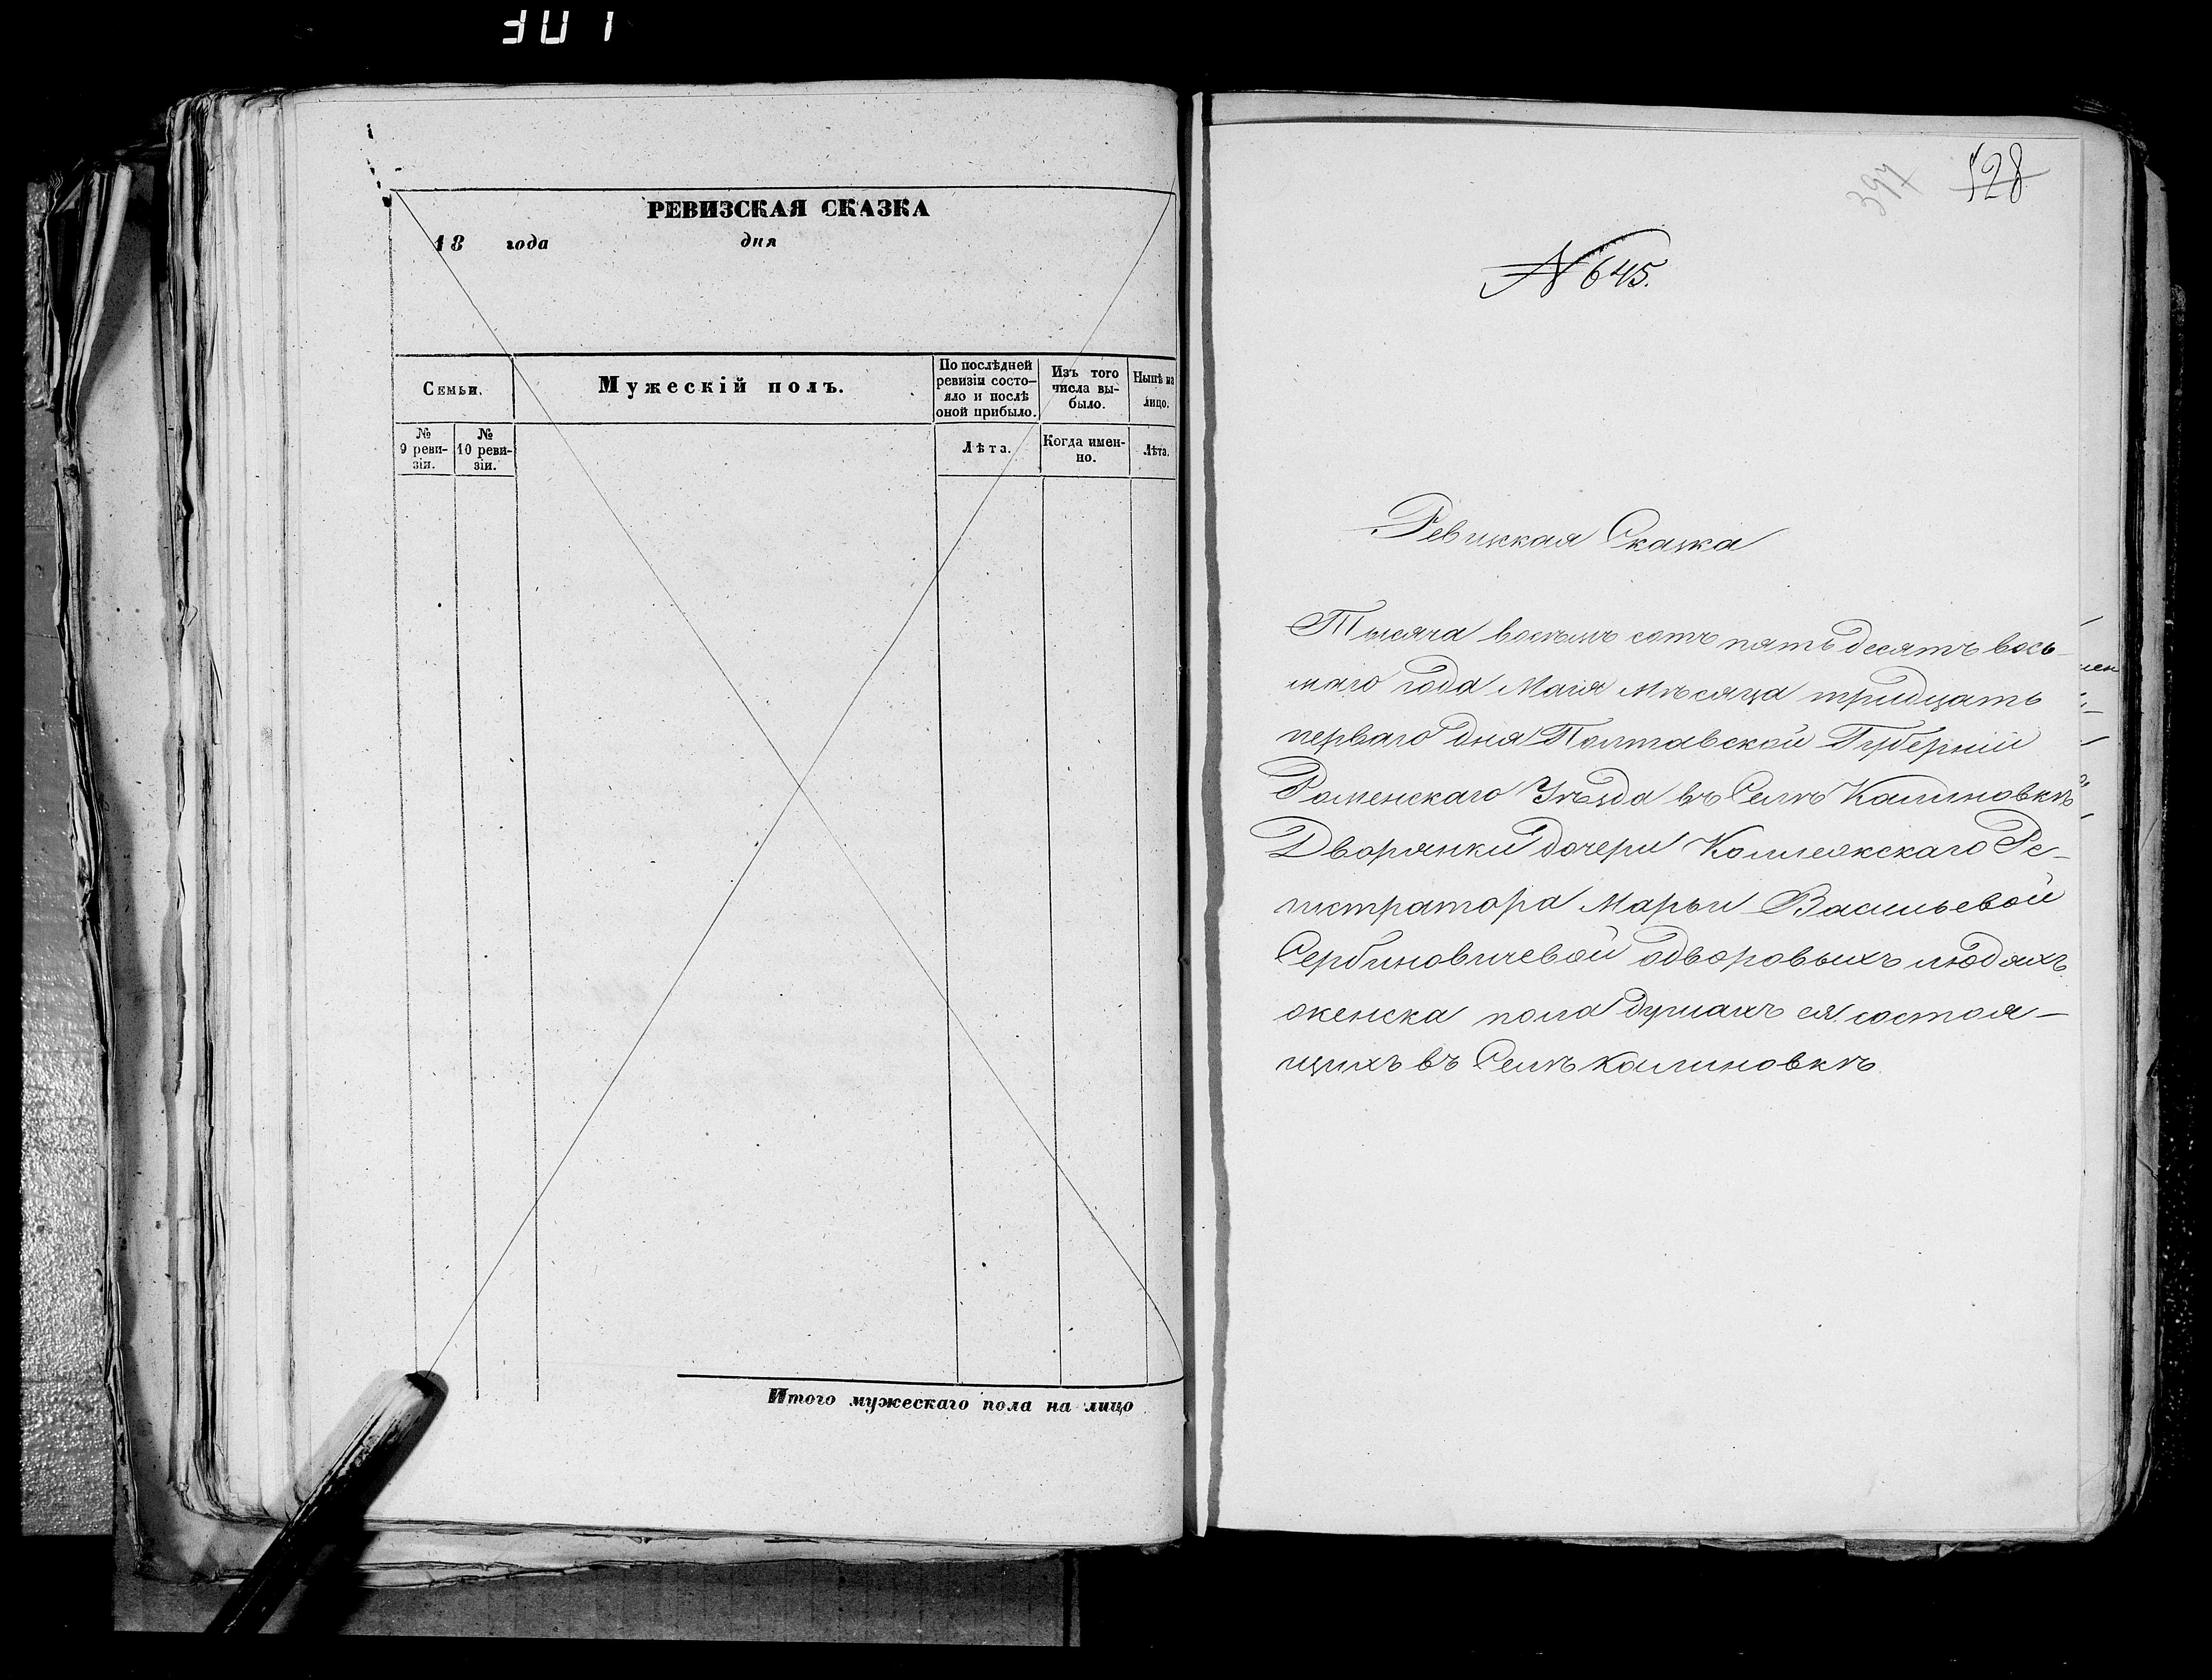 РЕВИЗСКАЯ СКАЗКА
18 года дня
Семьи.
Мужескій полъ.
По послѣдней ревизіи состо-
яло и послѣ оной прибыло.
Изъ того числа вы-
было.
Нынѣ на лицо.
№ 9 реви-
зіи.
№ 10 реви-
зіи.
Лѣта.
Когда имен-
но.
Лѣта.
Итого мужескаго пола на лицо
397 528
№ 645.
Ревизкая Сказка
Тысяча восемь сотъ пятьдесятъ вось-
маго года Маія Мѣсяца тридцать
перваго дня Полтавской Губерніи
Роменскаго Уѣзда въ Селѣ Калиновкѣ
Дворянки дочери Коллежскаго Ре-
гистратора Марьи Васильевой
Сербиновичевой одворовыхъ людяхъ
женска пола душахъ ея состоя-
щихъ въ Селѣ Калиновкѣ.